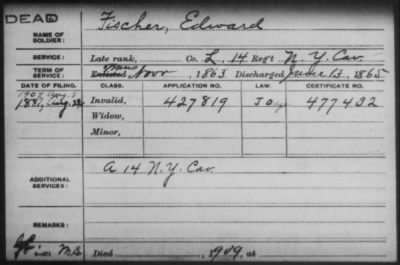 DEAD
Fischer, Edward
NAME OF
SOLDIER:
SERVICE: Late rank, Co. L, 14 Reg't N.Y. Cav.
TERM OF
SERVICE: Enlisted Nov. , 1863 Discharged June 13, 1865
DATE OF FILING. CLASS. APPLICATION NO. LAW. CERTIFICATE NO.
1881, Aug. 22 Invalid, 427819 477432
Widow,
Minor,
ADDITIONAL
SERVICES: A 14 N.Y. Cav.
REMARKS:
Died , 1909, at